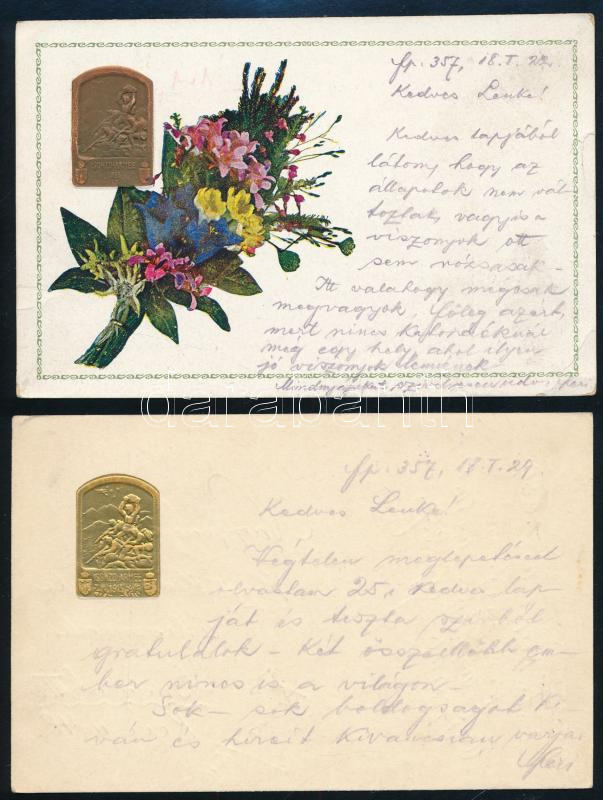 fp. 357, 18. I. 29.
Kedves Lenke!
Kedves lapjából
látom, hogy az
állapotok nem vál
toztak, vagyis a
viszonyok ott
sem rózsásak -
Itt valahogy mégcsak
megvagyok, főleg azért,
mert nincs
még egy hely ahol ilyen
jó viszonyok
ISONZO-ARMEE
darabanth.com
fp. 357, 18. I. 29.
Kedves Lenke!
Végtelen meglepetéssel
olvastam 25.i kedves lap-
ját és tiszta szívből
gratulálok - Két összeillőbb em-
ber nincs is a világon -
Sok - sok boldogságot kí-
ván és híreit kíváncsian várja
Feri
ISONZO-ARMEE